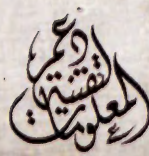 دعم
لتقنية
المعلومات